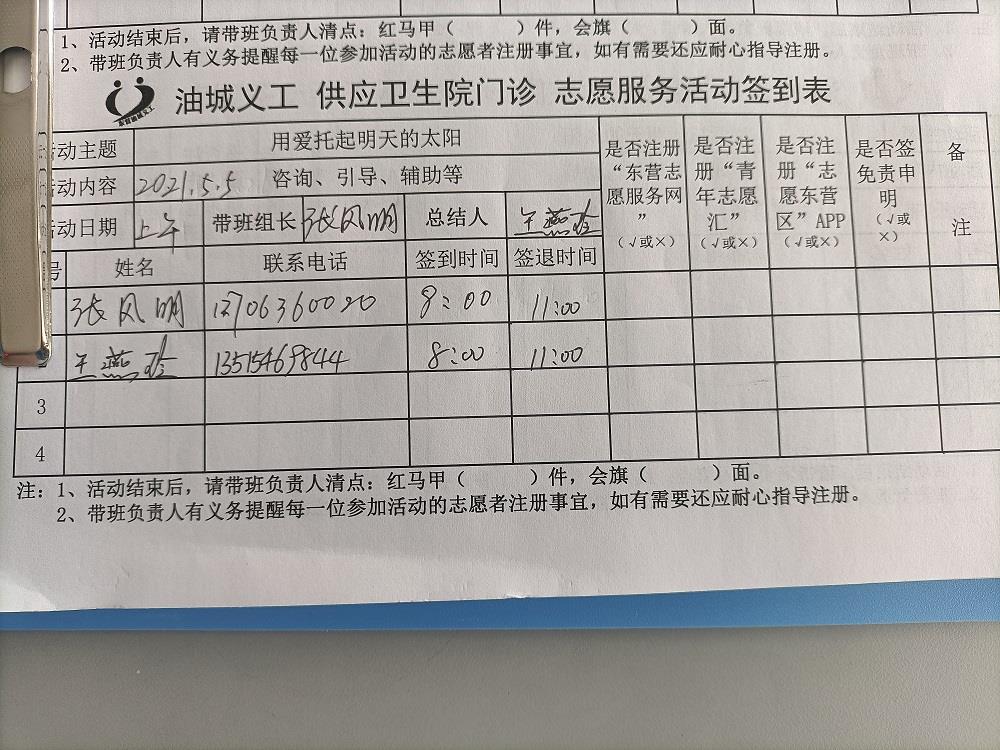 1、活动结束后，请带班负责人清点：红马甲（ ）件，会旗（ ）面。
2、带班负责人有义务提醒每一位参加活动的志愿者注册事宜，如有需要还应耐心指导注册。
油城义工 供应卫生院门诊 志愿服务活动签到表
动主题 用爱托起明天的太阳 是否注册“东营志愿服务网”（√或×） 是否注册“青年志愿汇”（√或×） 是否注册“志愿东营区”APP（√或×） 是否签免责申明（√或×） 备注
动内容 2021.5.5 咨询、引导、辅助等
动日期 上午 带班组长 张凤明 总结人 王燕玲
号 姓名 联系电话 签到时间 签退时间
张凤明 8:00 11:00
王燕玲 13515469844 8:00 11:00
3
4
注：1、活动结束后，请带班负责人清点：红马甲（ ）件，会旗（ ）面。
2、带班负责人有义务提醒每一位参加活动的志愿者注册事宜，如有需要还应耐心指导注册。